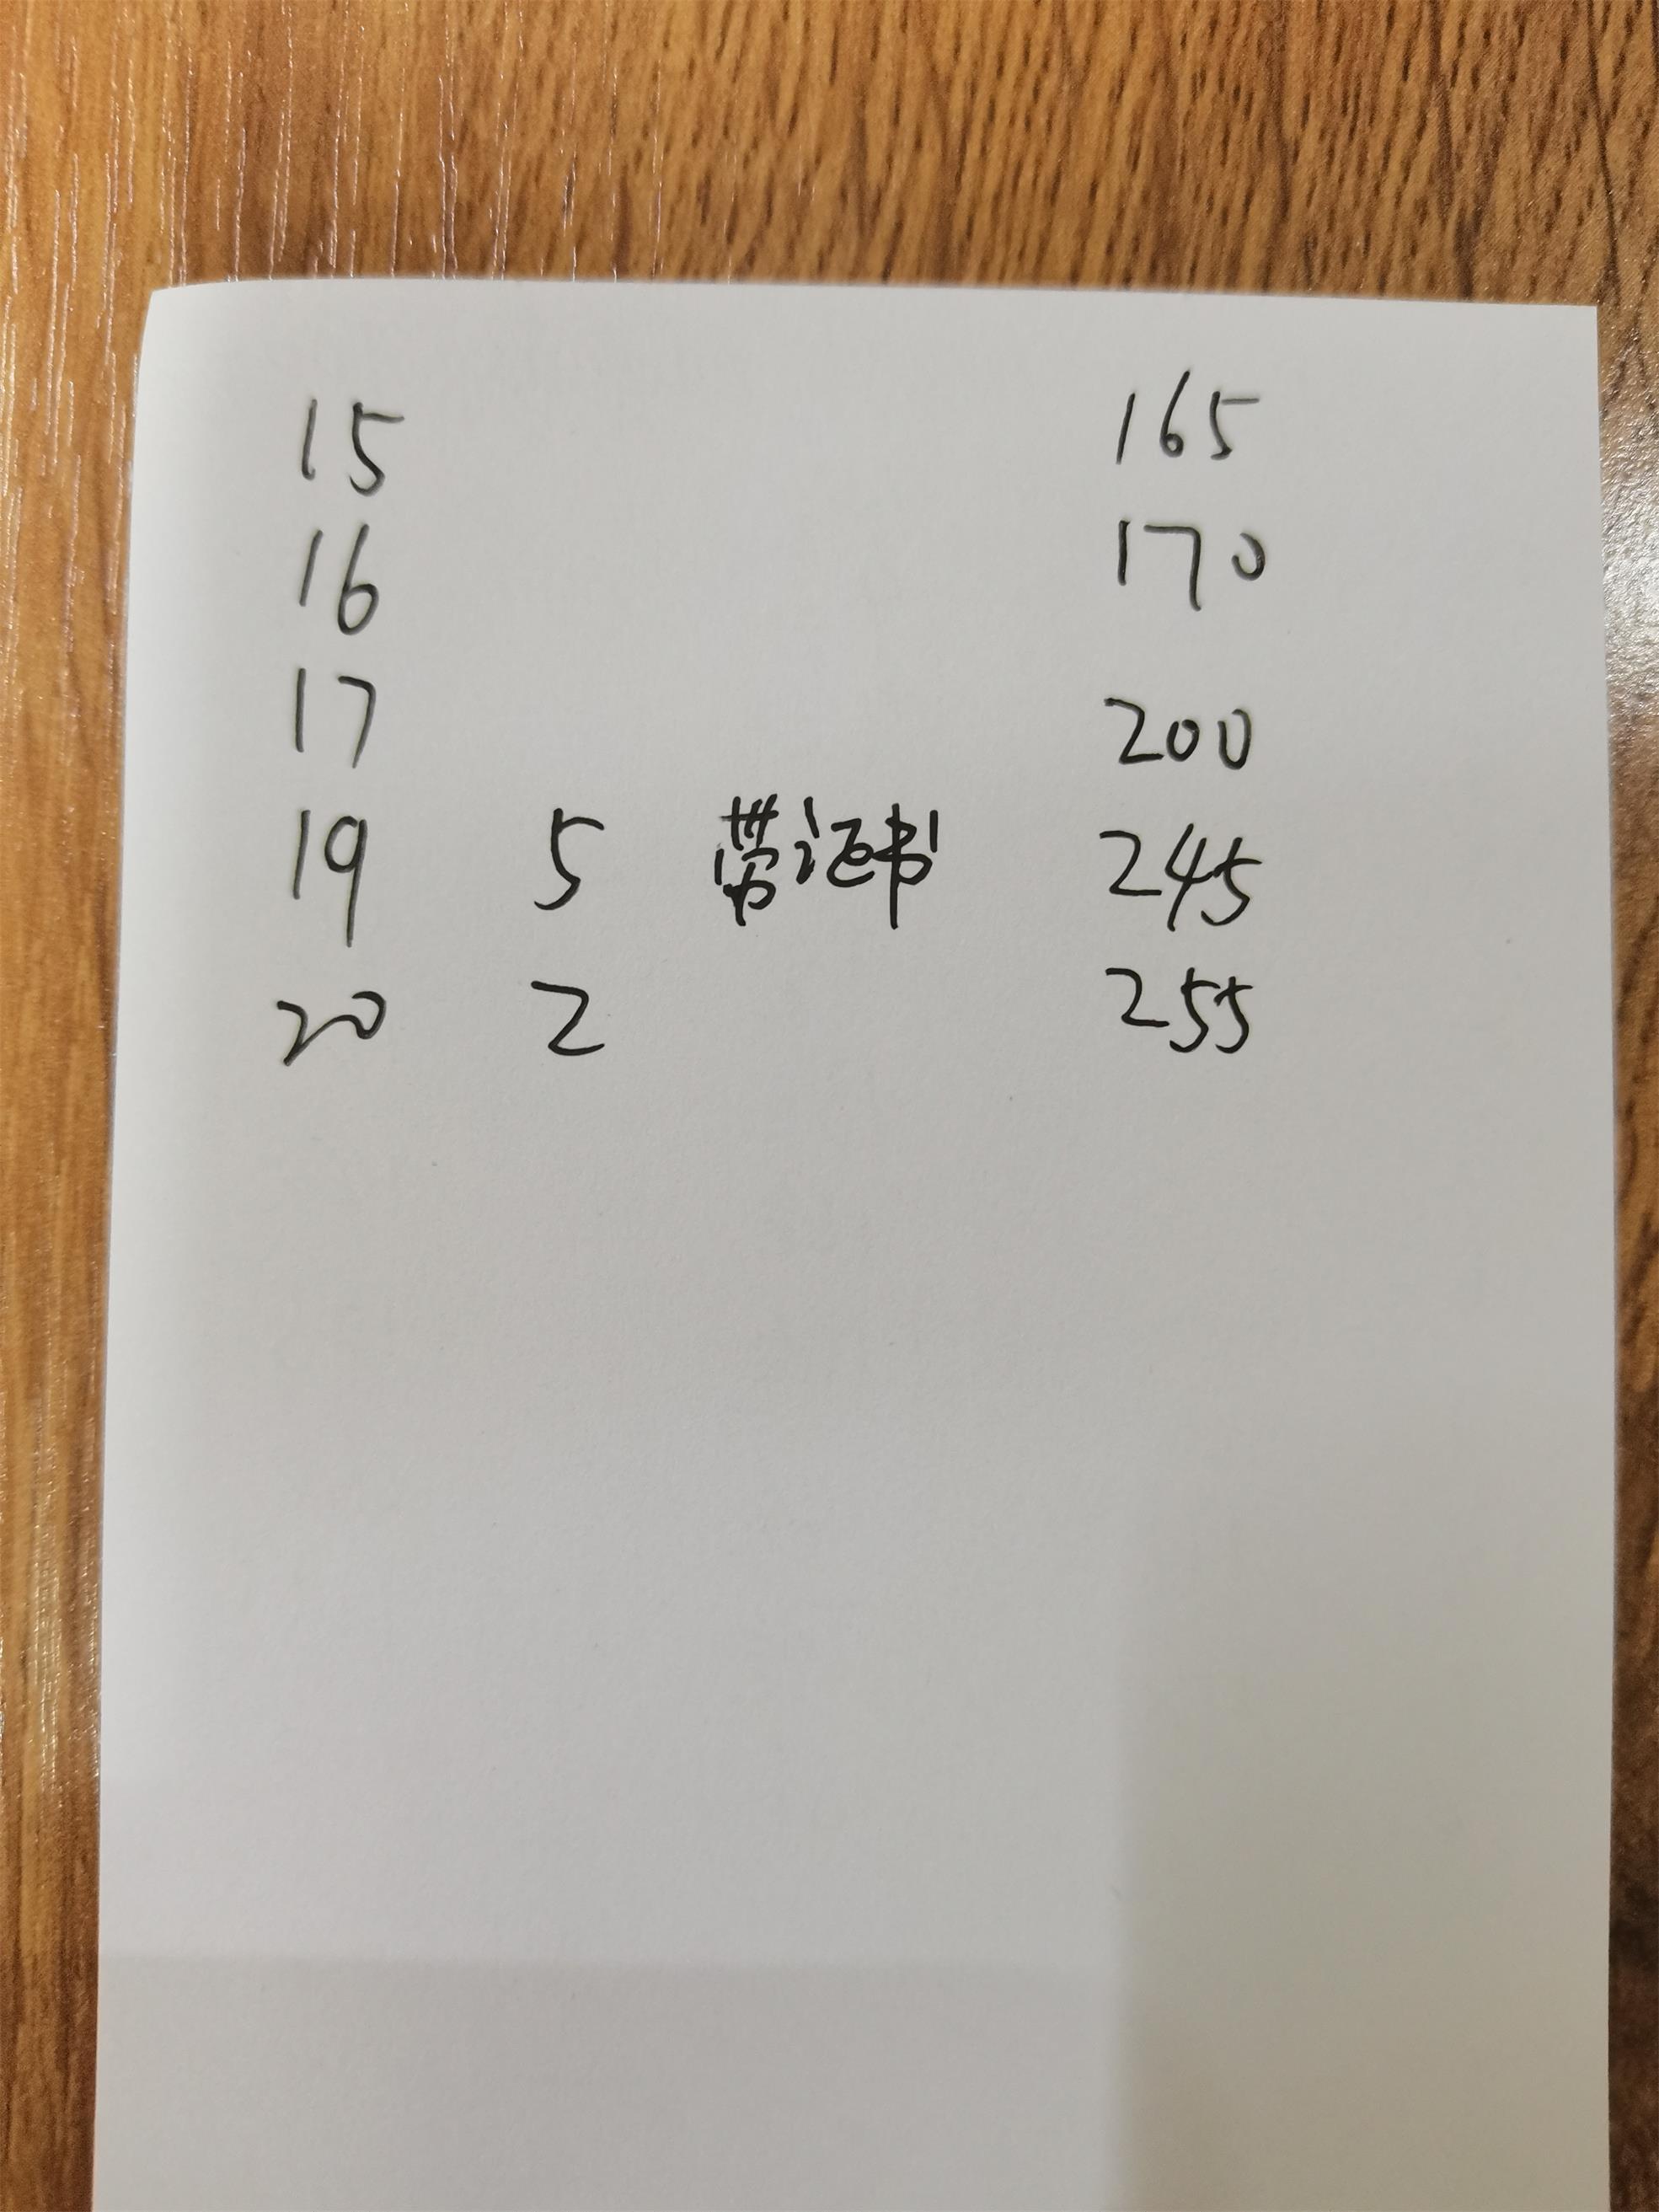 15 165
16 170
17 200
19 5 带证书 245
20 2 255